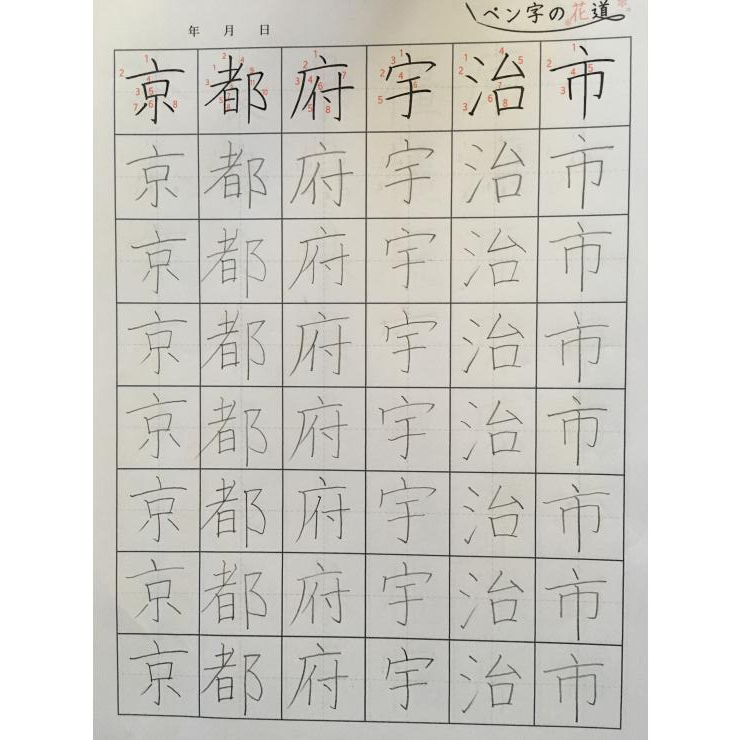 ペン字の花道
年 月 日
京都府宇治市
京都府宇治市
京都府宇治市
京都府宇治市
京都府宇治市
京都府宇治市
京都府宇治市
京都府宇治市